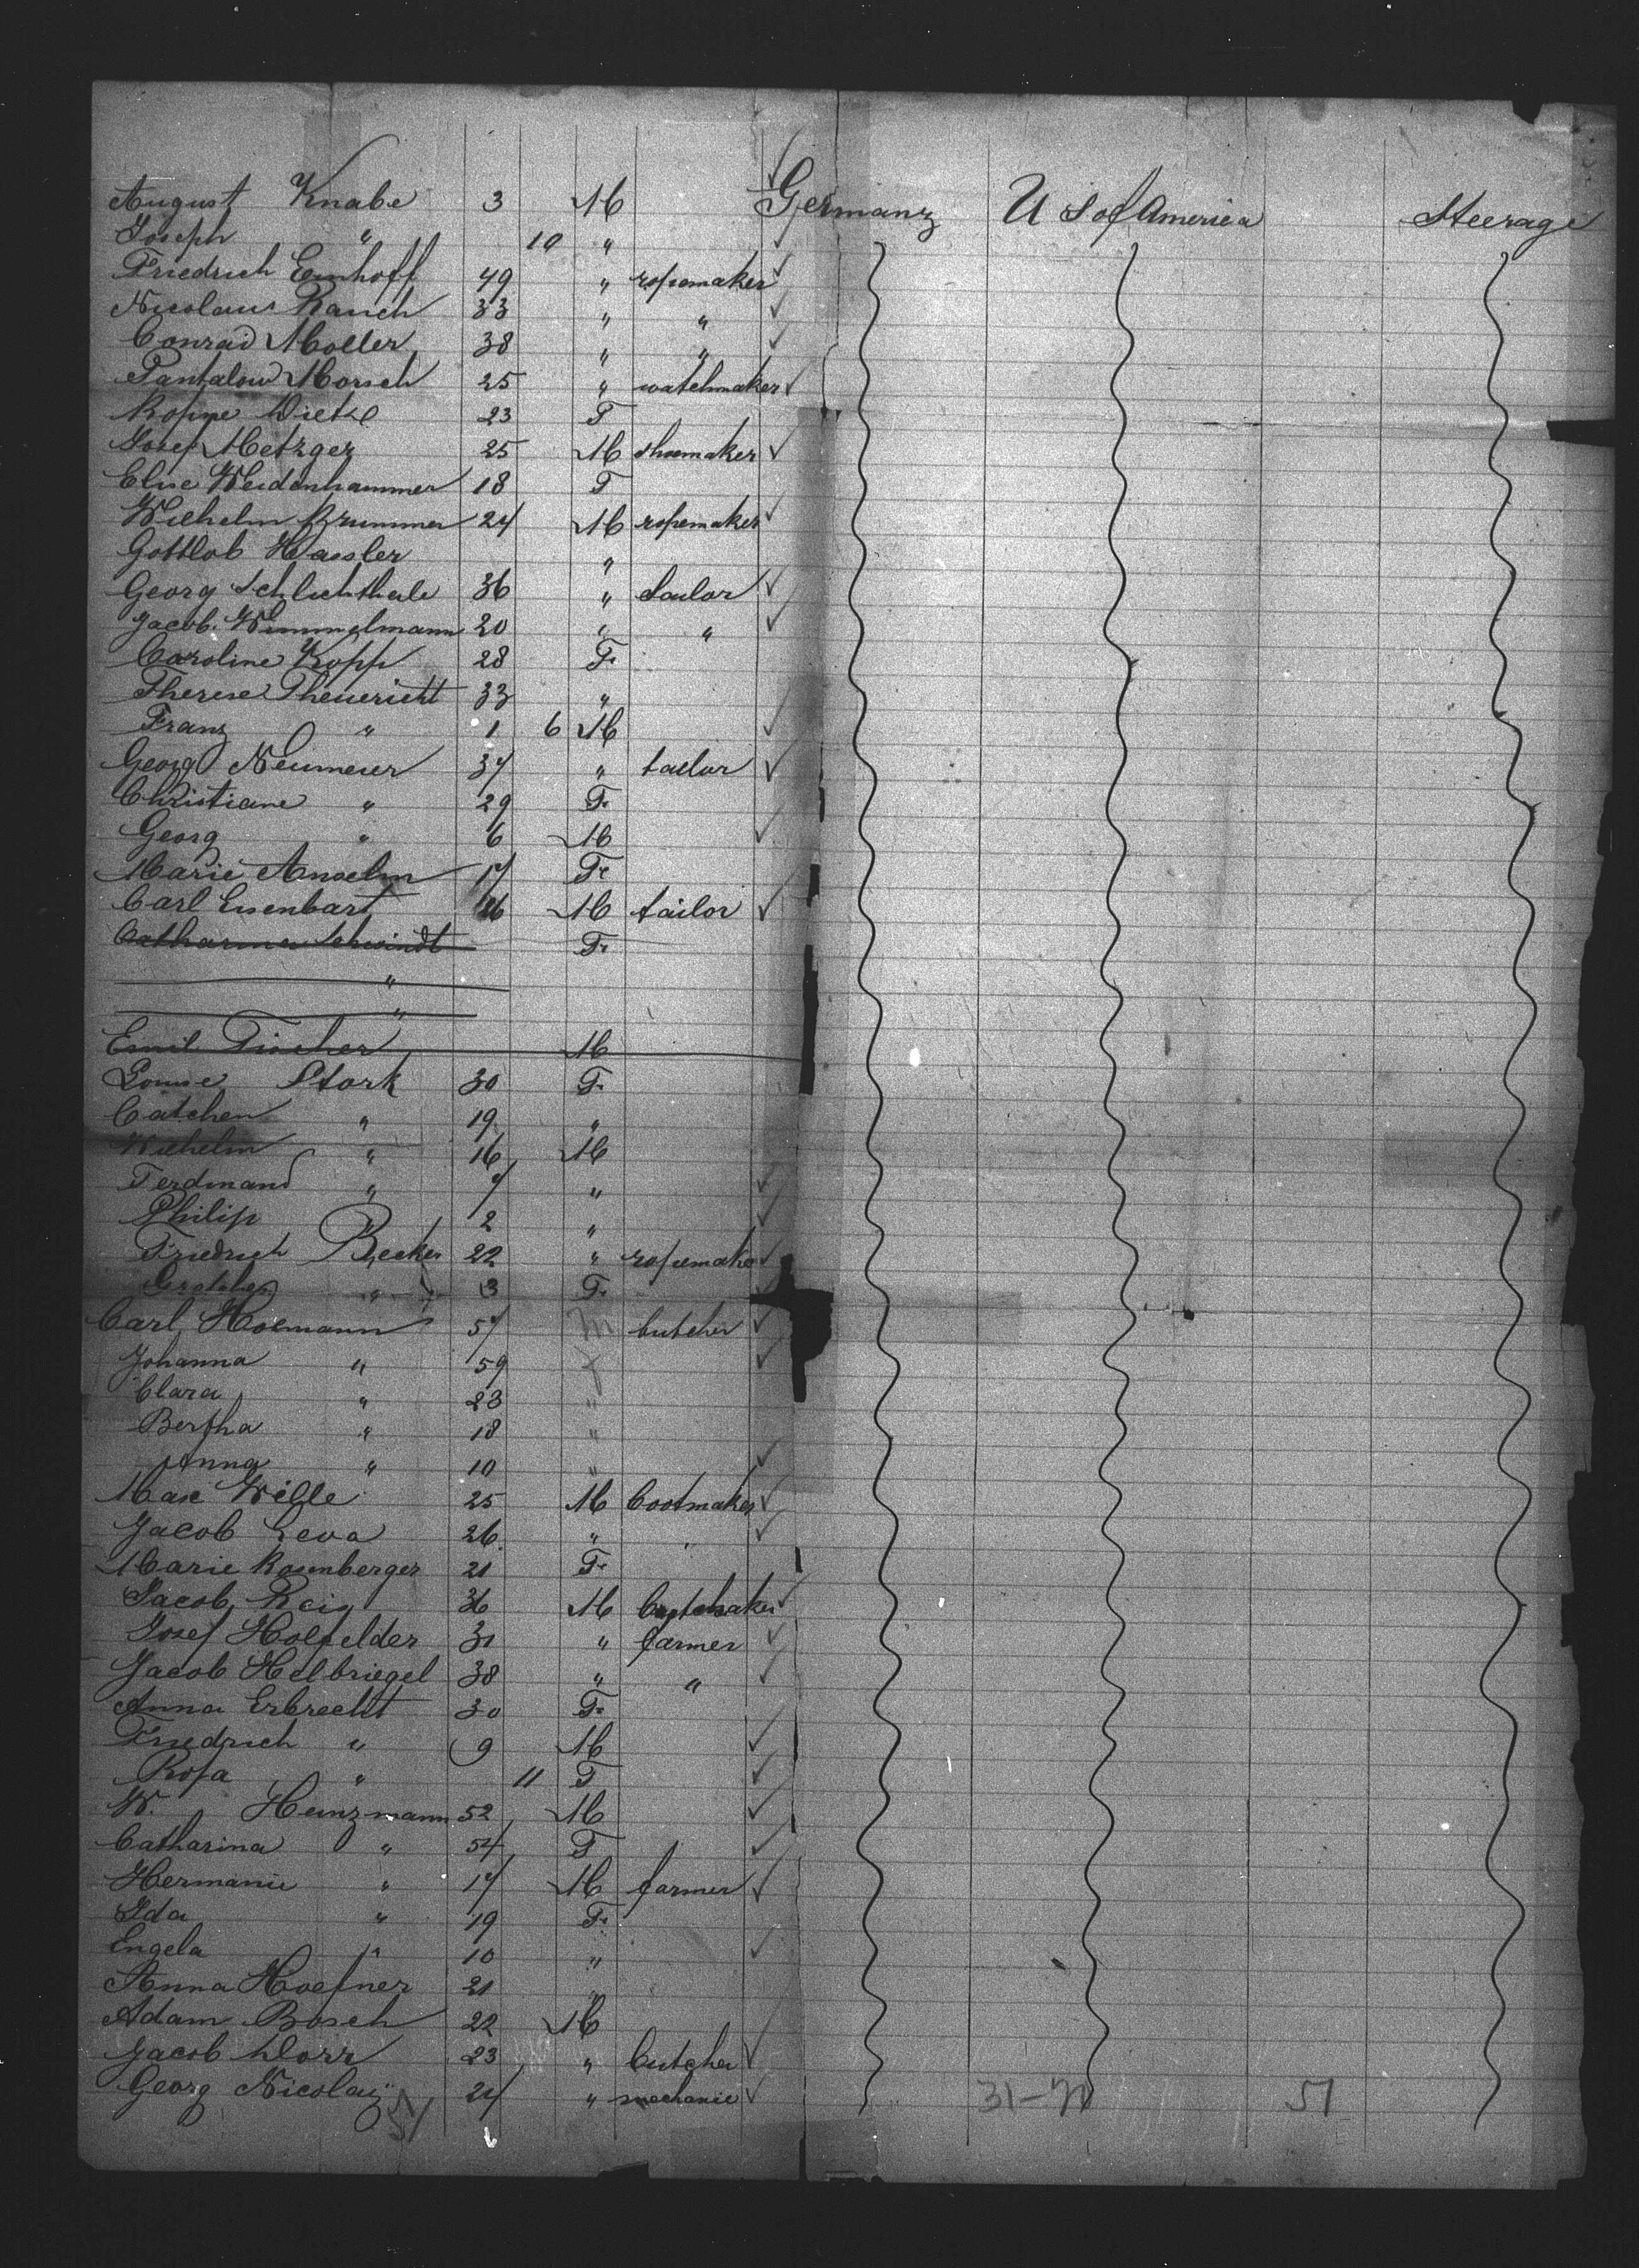 August Knabe 3 M Germany U S of America Steerage
Joseph " 10 "
Friedrich Emhoff 49 " ropemaker
Nicolaus Rauch 33 " "
Conrad Moller 38 " "
Pantalow Morsch 25 " watchmaker
Dietze 23 F
Josef Metzger 25 M shoemaker
Elise Weidenhammer 18 F
Wilhelm Brummer 24 M ropemaker
Gottlob Hassler "
Georg Schlichthale 36 " Sailor
Jacob Wimmelmann 20 " "
Caroline Kopp 28 F.
Therese Theuericht 33 "
Franz " 1 6 M
Georg Neumeier 34 " tailor
Christiane " 29 F.
Georg " 6 M
Marie Anselm 17 F.
Carl Eisenbart 16 M tailor
Catharina Schwindt F.
"
"
Emil Fischer M
Louise Stork 30 F.
Catchen " 19 "
Wilhelm " 16 M
Ferdinand " 7 "
Philip " 2 "
Friedrich Becker 22 " ropemaker
Gretchen " 3 F.
Carl Hoemann 57 m butcher
Johanna " 59 f
Clara " 23 "
Bertha " 18 "
Anna " 10 "
Max Wille 25 M bootmaker
Jacob Leva 26 "
Marie Rosenberger 21 F.
Jacob Reig 36 M
Josef Holfelder 31 " farmer
Jacob Helbriegel 38 " "
Anna Erbrecht 30 F.
Friedrich " 9 M
Rosa " 11 F
W. Heinzmann 52 M
Catharina " 54 F
Hermanie " 17 M farmer
Ida " 19 F.
Engela " 10 "
Anna Hoefner 21 "
Adam Bosch 22 M
Jacob Dorr 23 " butcher
Georg Nicolay 24 " mechanic
51 31-71 51